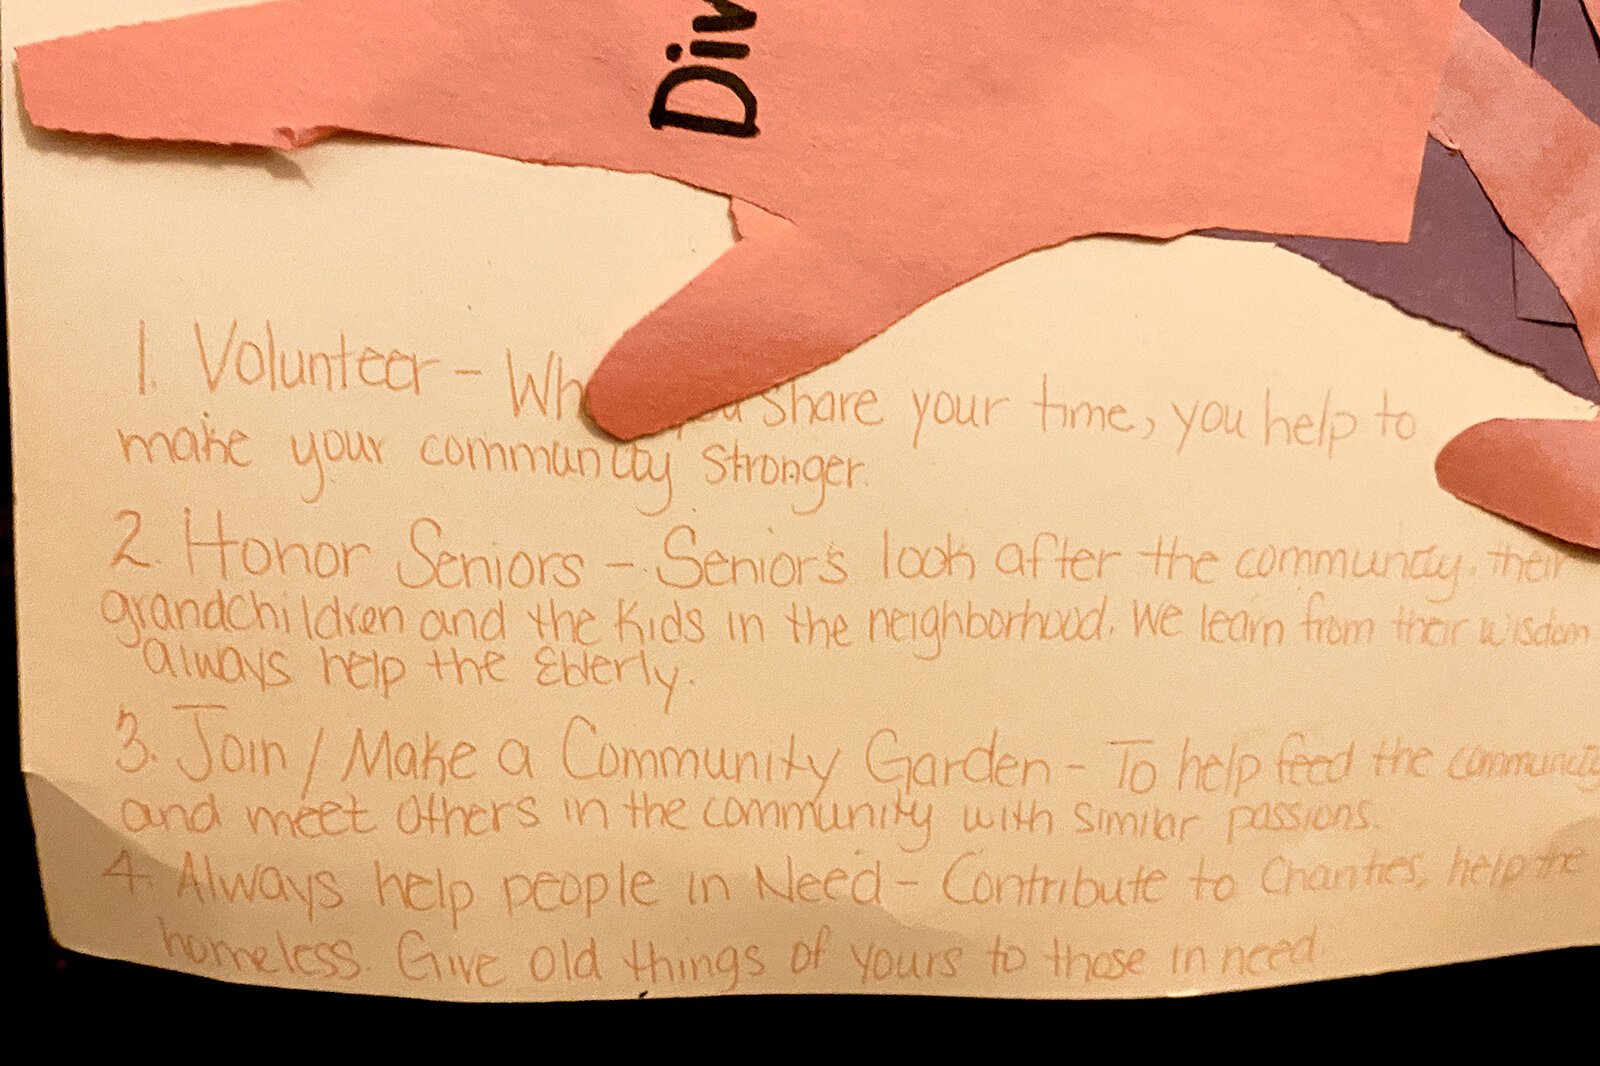 Div
1. Volunteer - Wh you share your time, you help to
make your community stronger.
2. Honor Seniors - Seniors look after the community. their
grandchildren and the kids in the neighborhood. We learn from their wisdom.
always help the Elderly.
3. Join / Make a Community Garden - To help feed the community
and meet others in the community with similar passions.
4. Always help people in Need - Contribute to Charities, help the
homeless. Give old things of yours to those in need.